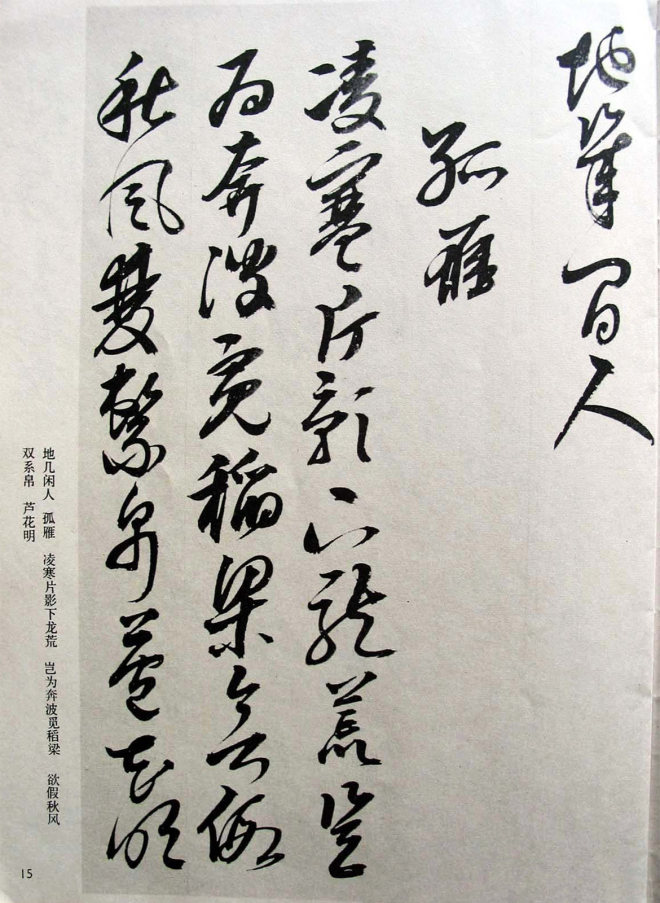 地幾閒人
孤雁
凌寒片影下龍荒豈
為奔波覓稻梁欲假
秋風雙繫帛蘆花明
地几闲人 孤雁 凌寒片影下龙荒 岂为奔波觅稻梁 欲假秋风
双系帛 芦花明
15